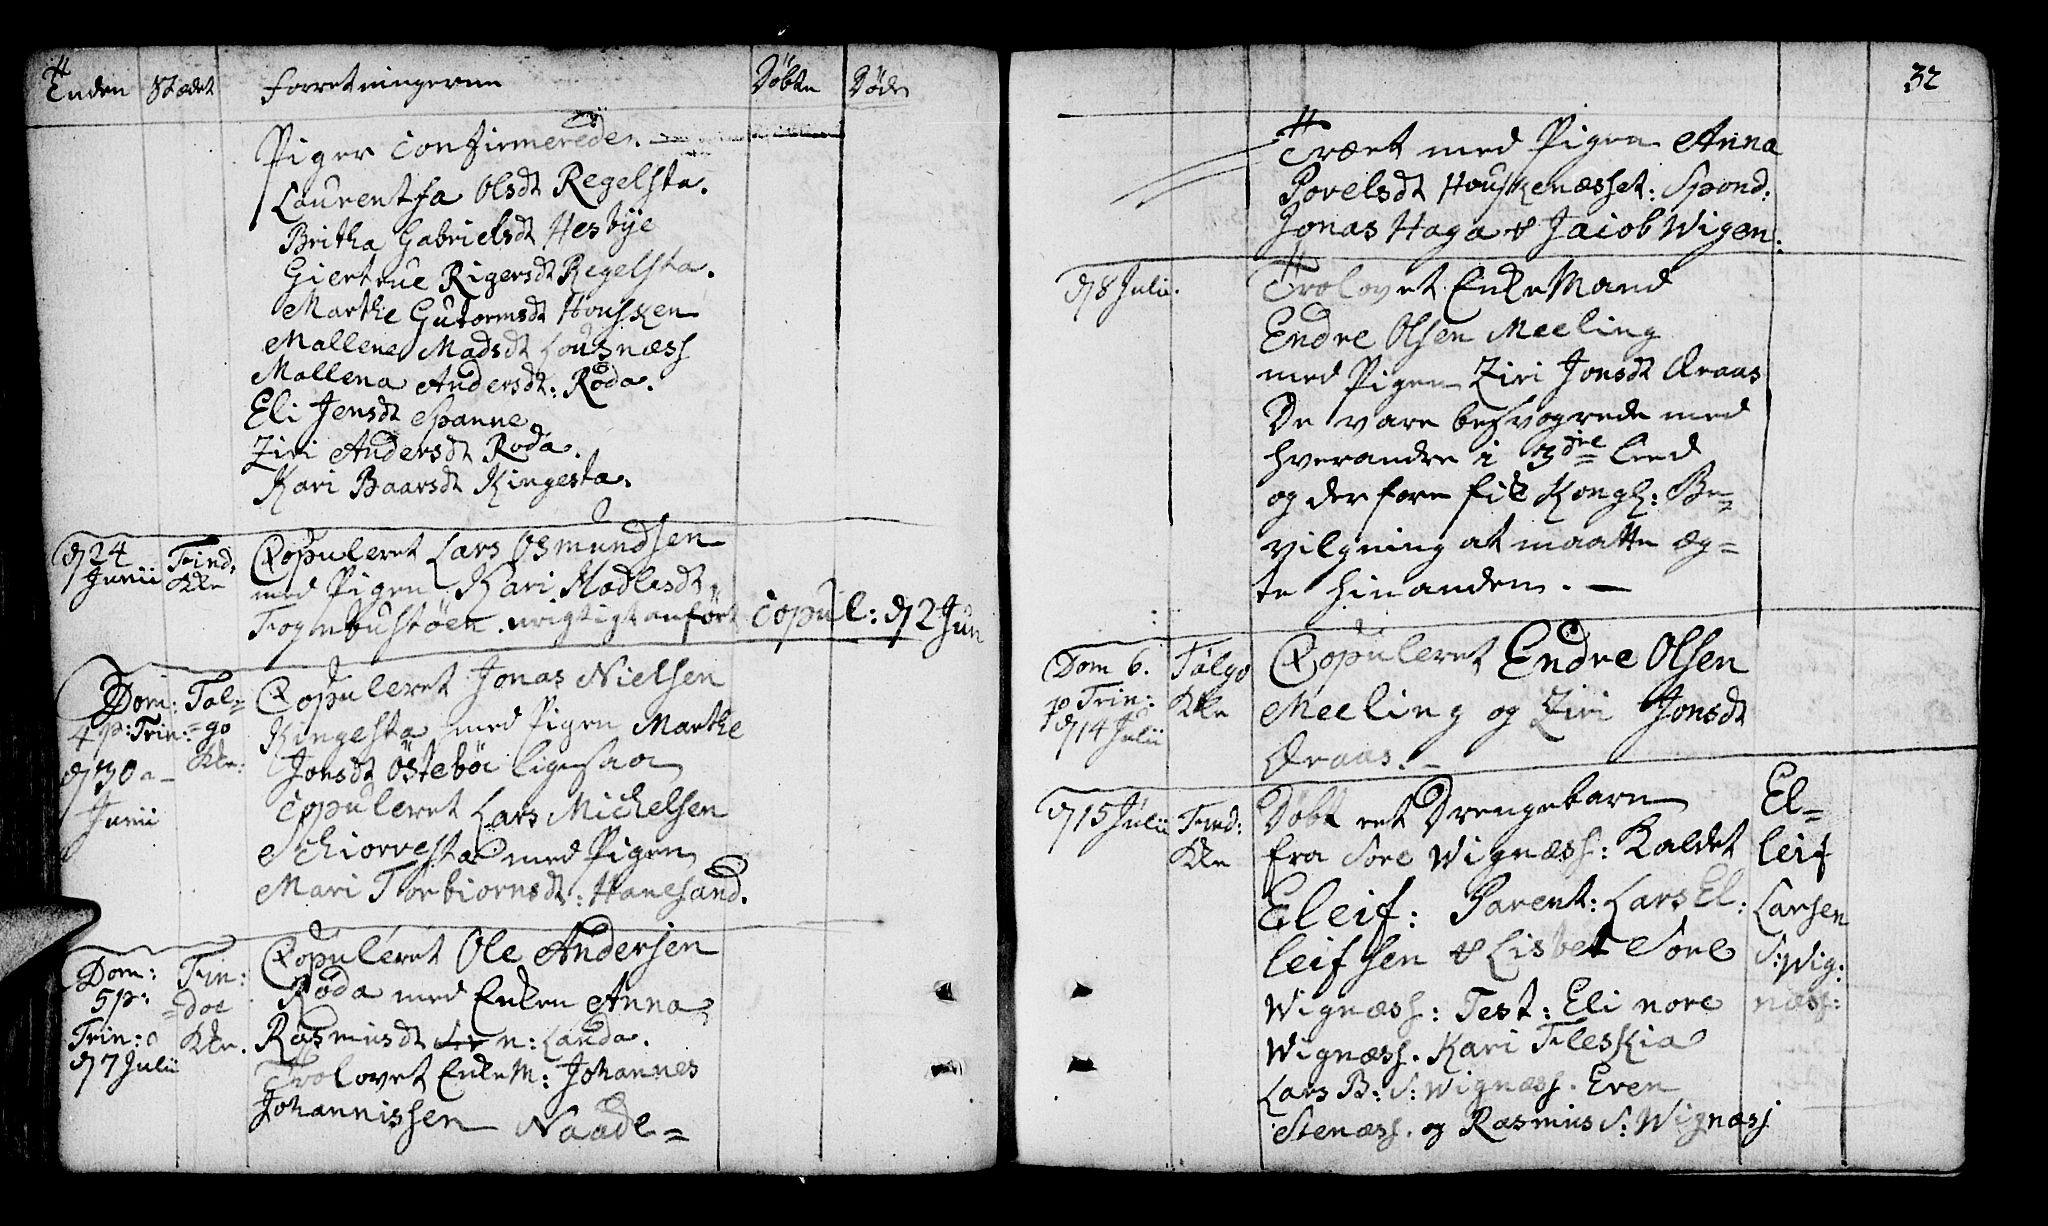 Tiden Stædet Forretningerne Döbte Döde
Piger Confirmerede.
Laurentsa Olsdt Regelsta.
Britha Gabrielsdt Hesbÿe
Giertrue Rigersdt Regelsta.
Marthe Gutormsdt Housken
Mallene Madsdt Lousnæss
Mallena Andersdt: Röda.
Eli Jensdt Spanne
Ziri Andersdt Roda.
Kari Baarsdt Kingesta.
d 24 Junii Find: Kke
Copuleret Lars Osmundsen
med Pigen Kari Madlesdt
Fognbustöen. urigtigt anfört Copul: d 2 Jun
Dom: 4 p: Trin: d 30 Junii Tal=go Kke:
Copuleret Jonas Nielsen
Kingesta med Pigen Marthe
Jonsdt Östeböe ligesaa
Copuleret Lars Michelsen
Schiorvesta med Pigen
Mari Torbiornsdt: Hanesand.
Dom: 5 p: Trin: d 7 Julii Fin:=döe Kke.
Copuleret Ole Andersen
Röda med Enken Anna
Rasmusdt n: Landa.
Trolovet EnkeM: Johannes
Johannissen Naade=
32
Træet med Pigen Anna
Povelsdt Houskenæsset: Spond:
Jonas Haga & Jacob Wigen:
d 8 Julii.
Trolovet EnkeMand
Endre Olsen Meeling
med Pigen Ziri Jonsdt Aaraas
De vare besvogrede med
hverandre i 3die Leed
og derfore fik Kongl: Be=
vilgning at maatte æg=
te hinanden. —
Dom 6. p Trin: d 14 Julii Talgo Kke
Copuleret Endre Olsen
Meeling og Ziri Jonsdt
Aaraas. —
d 15 Julii Find: Kke
Döbt eet Drengebarn El=
fra Sore Wignæss: Kaldet leif
Eleif: Parent: Lars El: Larsen
leifsen & Lisbet Sore S: Wig:
Wignæss: Test: Eli nore næss:
Wignæss. Kari Fleskia
Lars B: S: Wignæss. Even
Stenæss. og Rasmus S: Wignæss